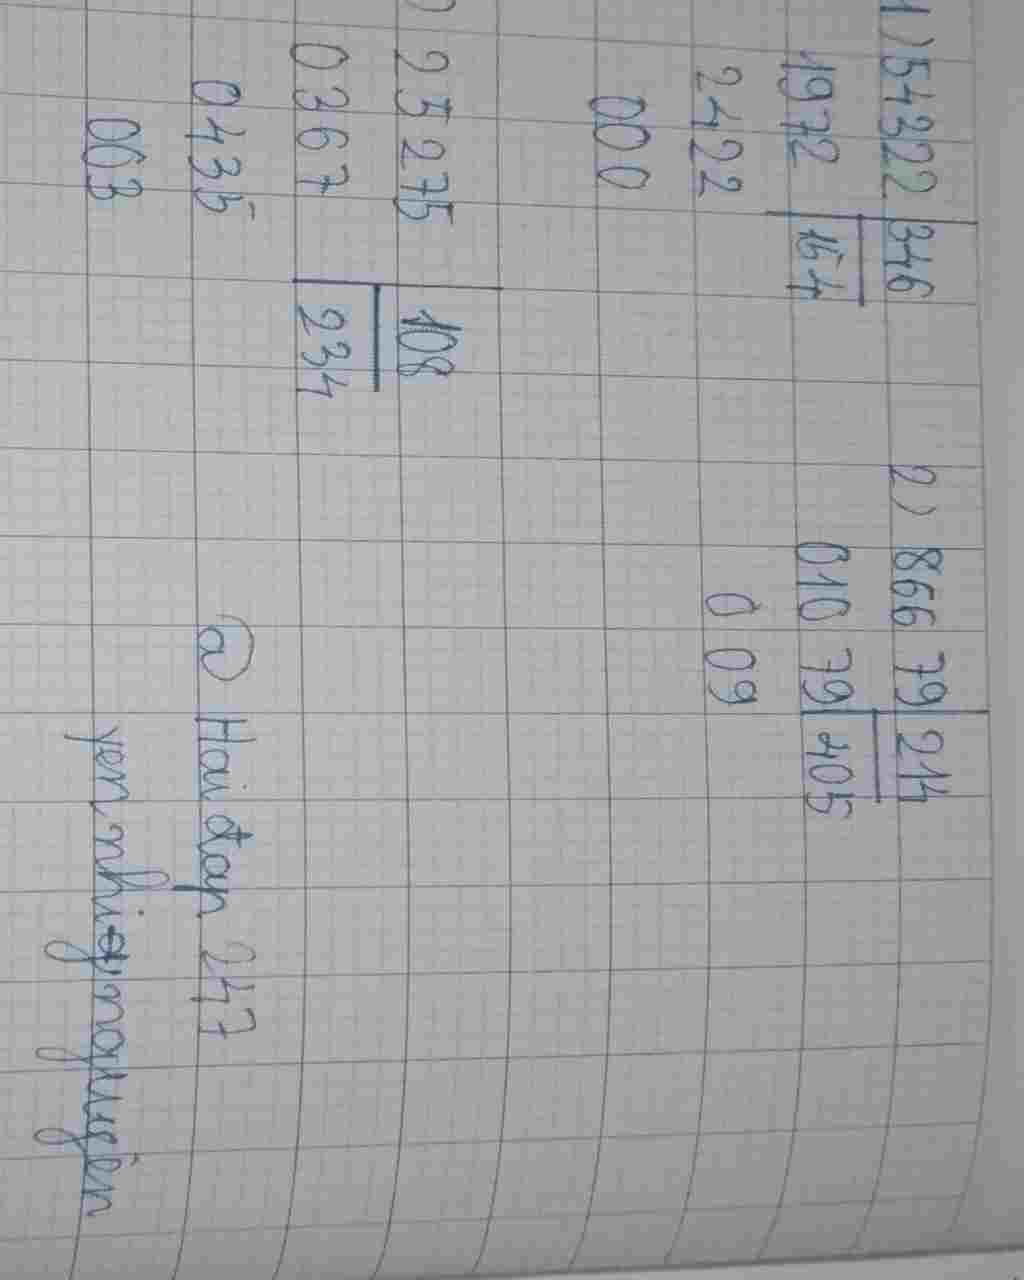 1) 54322 346
1972 154
2422
000
2) 86679 214
01079 405
009
) 25275 108
0367 234
0435
063
@ Hoi đap 247
yen nhi nguyên